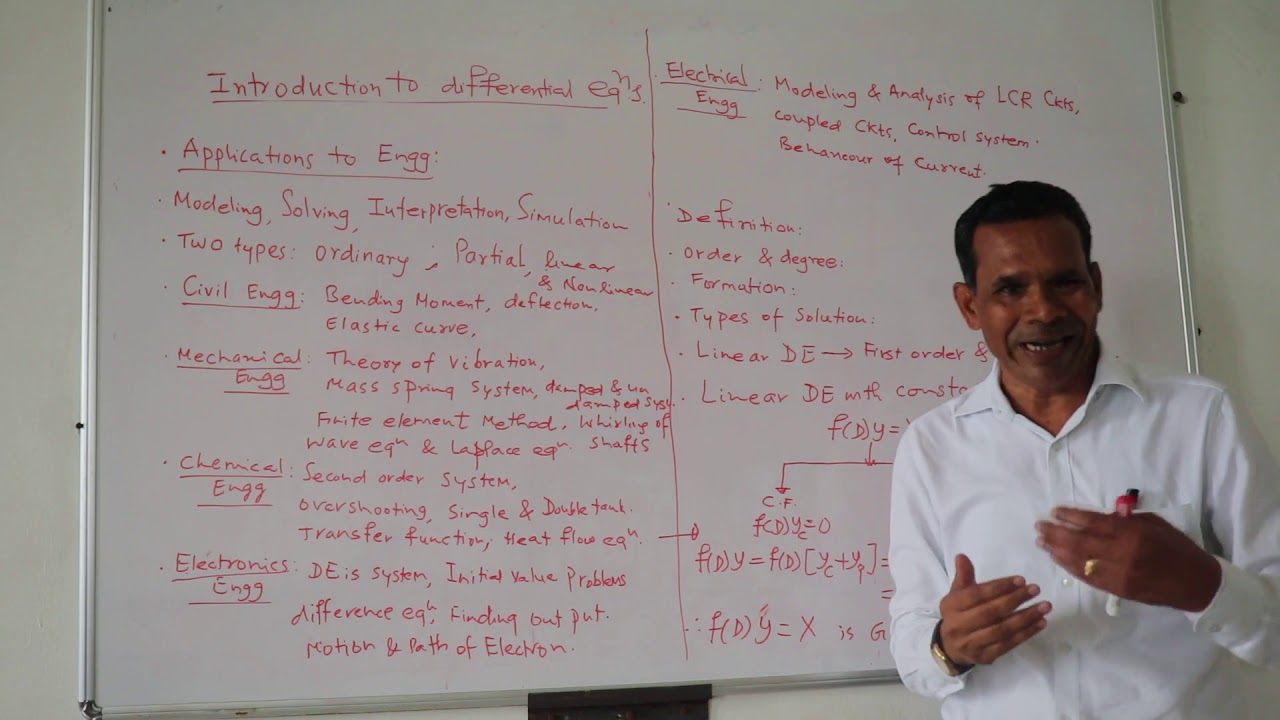 Introduction to differential eqⁿs.
• Applications to Engg:
• Modeling, Solving, Interpretation, Simulation
• Two types: ordinary, Partial, linear
& Nonlinear
• Civil Engg: Bending Moment, deflection,
Elastic curve,
• Mechanical Engg: Theory of vibration,
Mass spring system, damped & un
damped syst.
Finite element Method, Whirling of
shafts
Wave eqⁿ & Laplace eqⁿ.
• Chemical Engg: Second order system,
overshooting, Single & Double tank.
Transfer function, Heat flow eqⁿ.
• Electronics Engg: DE is system, Initial value Problems
difference eqⁿ, Finding out put.
Motion & Path of Electron.
• Electrical Engg: Modeling & Analysis of LCR Ckts,
coupled Ckts, Control system.
Behaneour of Current.
• Definition:
• order & degree:
• Formation:
• Types of Solution:
• Linear DE → First order &
• Linear DE with consta
f(D)y =
C.F.
f(D)y_c = 0
f(D)y = f(D)[y_c + y_p] =
=
∴ f(D)y = X is G